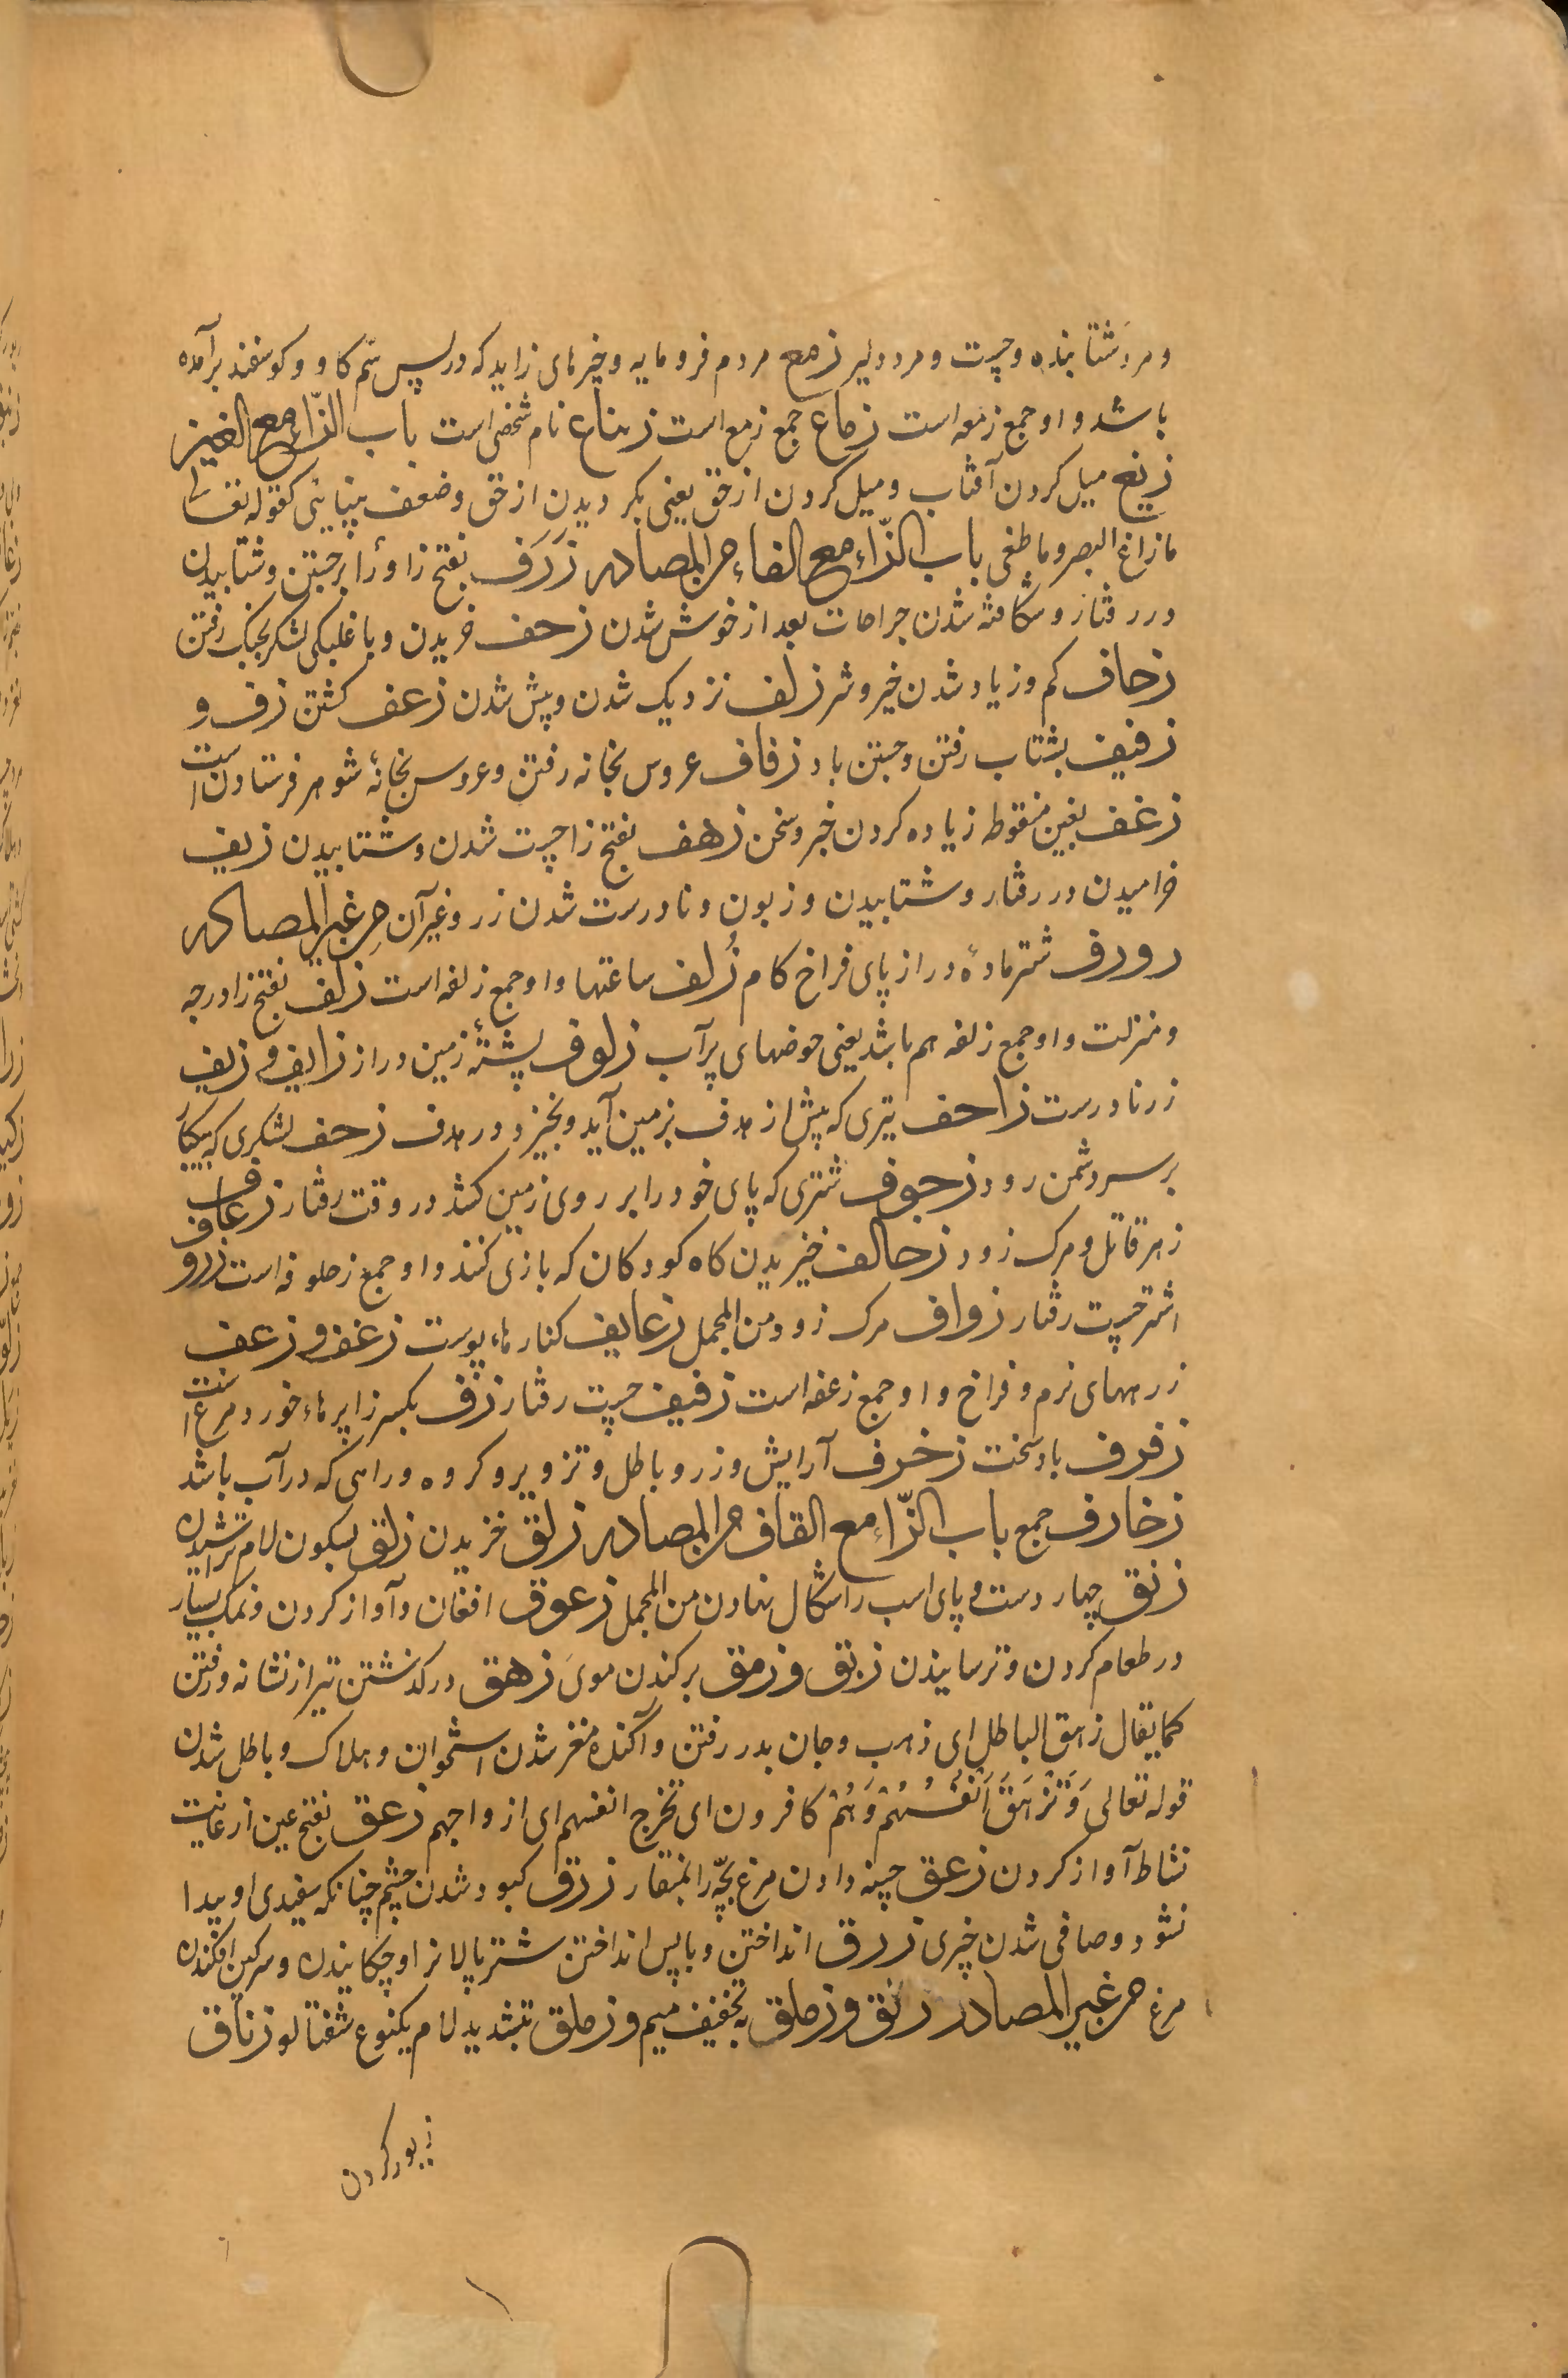 و مرد شتابنده و چست و مرد دلیر زمع مردم فرومایه و خیرهای زاید که در پس سم کاو و کوسفند برآمده
باشد و او جمع زمعه است زماع جمع زمع است زنباع نام شخصی است باب الزّاء مع الغین
زیغ میل کردن آفتاب و میل کردن از حق یعنی بکردیدن از حق و ضعف بینایئی کقوله تعالی
مازاغ البصر وما طغی باب الزّاء مع الفاء من المصادر زَرَف بفتح زا و را برجستن و شتابیدن
در رفتار و شکافته شدن جراحات بعد از خوش شدن زحف خزیدن و با غلبکی لشکر بجنک رفتن
زحاف کم و زیاد شدن خیر و شر زلف نزدیک شدن و پیش شدن زعف کشتن زف و
زفیف بشتاب رفتن و جستن باد زفاف عروس بخانه رفتن و عروس بخانهٔ شوهر فرستادن است
زغف بغین منقوطه زیاده کردن خبر و سخن زهف بفتح زا چست شدن و شتابیدن زیف
خرامیدن در رفتار و شتابیدن و زبون و نادرست شدن زر و غیر آن من غیر المصادر
رورف شتر مادهٔ دراز پای فراخ کام زُلف ساعتها و او جمع زلفه است زلف بفتح زا درجه
و منزلت و او جمع زلفه هم باشد یعنی حوضهای پر آب زلوف پشتهٔ زمین دراز زایف و زیف
زر نادرست زاحف تیری که پیش از هدف بزمین آید و بخیزد و در هدف زحف لشکری که بیکبار
بر سر دشمن رود زحوف شتری که پای خود را بر روی زمین کشد در وقت رفتار زعاف
زهر قاتل و مرک زود زحالف خیزیدن کاه کودکان که بازی کنند و او جمع زحلوفه است زروف
اشتر چست رفتار زواف مرک زود من المجمل زعایف کنارهاء پوست زغف و زعف
زرههای نرم و فراخ و او جمع زغفه است زفیف چست رفتار زف بکسر زا پرهاء خورد مرغ است
زفرف باد سخت زخرف آرایش و زر و باطل و تزویر و کروه و راهی که در آب باشد
زخارف جمع باب الزّاء مع القاف من المصادر زلق خزیدن زلق بسکون لام تراشیدن
زنق چهار دست و پای اسب را شکال نهادن من المجمل زعوق افغان و آواز کردن و نمک بسیار
در طعام کردن و ترسانیدن زبق و زمق برکندن موی زهق در کذشتن تیر از نشانه و رفتن
کما یقال زهق الباطل ای ذهب و جان بدر رفتن و آکنده مغز شدن استخوان و هلاک و باطل شدن
قوله تعالی وَتَزهَقَ اَنفُسُهُم وَهُم کافرون ای تخرج انفسهم ای ازواجهم زعق بفتح عین از غایت
نشاط آواز کردن زعق چینه دادن مرغ بچّه را بمنقار زرق کبود شدن چشم چنانکه سفیدی او پیدا
نشود و صافی شدن چیزی زرق انداختن و باپس انداختن شتر پالان را و چکانیدن و سرکین افکندن
مرغ من غیر المصادر زنق و زملق به تخفیف میم و زملق بتشدید لام یکنوع شفتالو زناق
زیور کردن